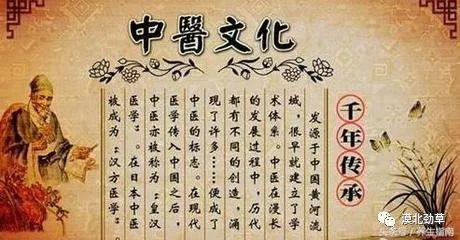 中醫文化
千年传承
发源于中国黄河流
域，很早就建立了学
术体系。中医在漫长
的发展过程中，历代
都有不同的创造，涌
现了许多……便成了
中医的标志。在现代
医学传入中国之后，
中医亦被称为“皇汉
医学”。在日本中医
被成为“汉方医学”。
漠北劲草
头条号 / 养生指南